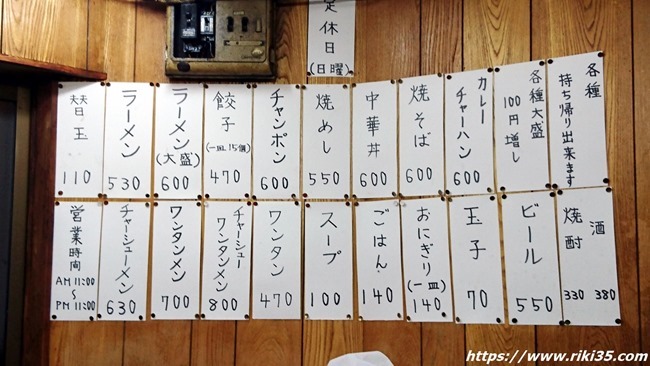 定休日
(日曜)
各種
持ち帰り出来ます
各種大盛
100円増し
カレー
チャーハン
600
焼そば
600
中華丼
600
焼めし
550
チャンポン
600
餃子
(一皿15個)
470
ラーメン
(大盛)
600
ラーメン
530
替玉
110
酒
380
焼酎
330
ビール
550
玉子
70
おにぎり
(一皿)
140
ごはん
140
スープ
100
ワンタン
470
チャーシュー
ワンタンメン
800
ワンタンメン
700
チャーシューメン
630
営業時間
AM 11:00
~
PM 11:00
https://www.riki35.com